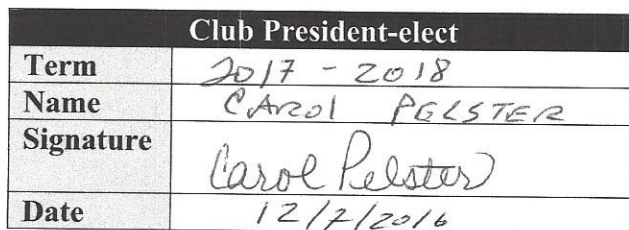 Club President-elect
Term 2017 - 2018
Name CAROL PELSTER
Signature Carol Pelster
Date 12/7/2016